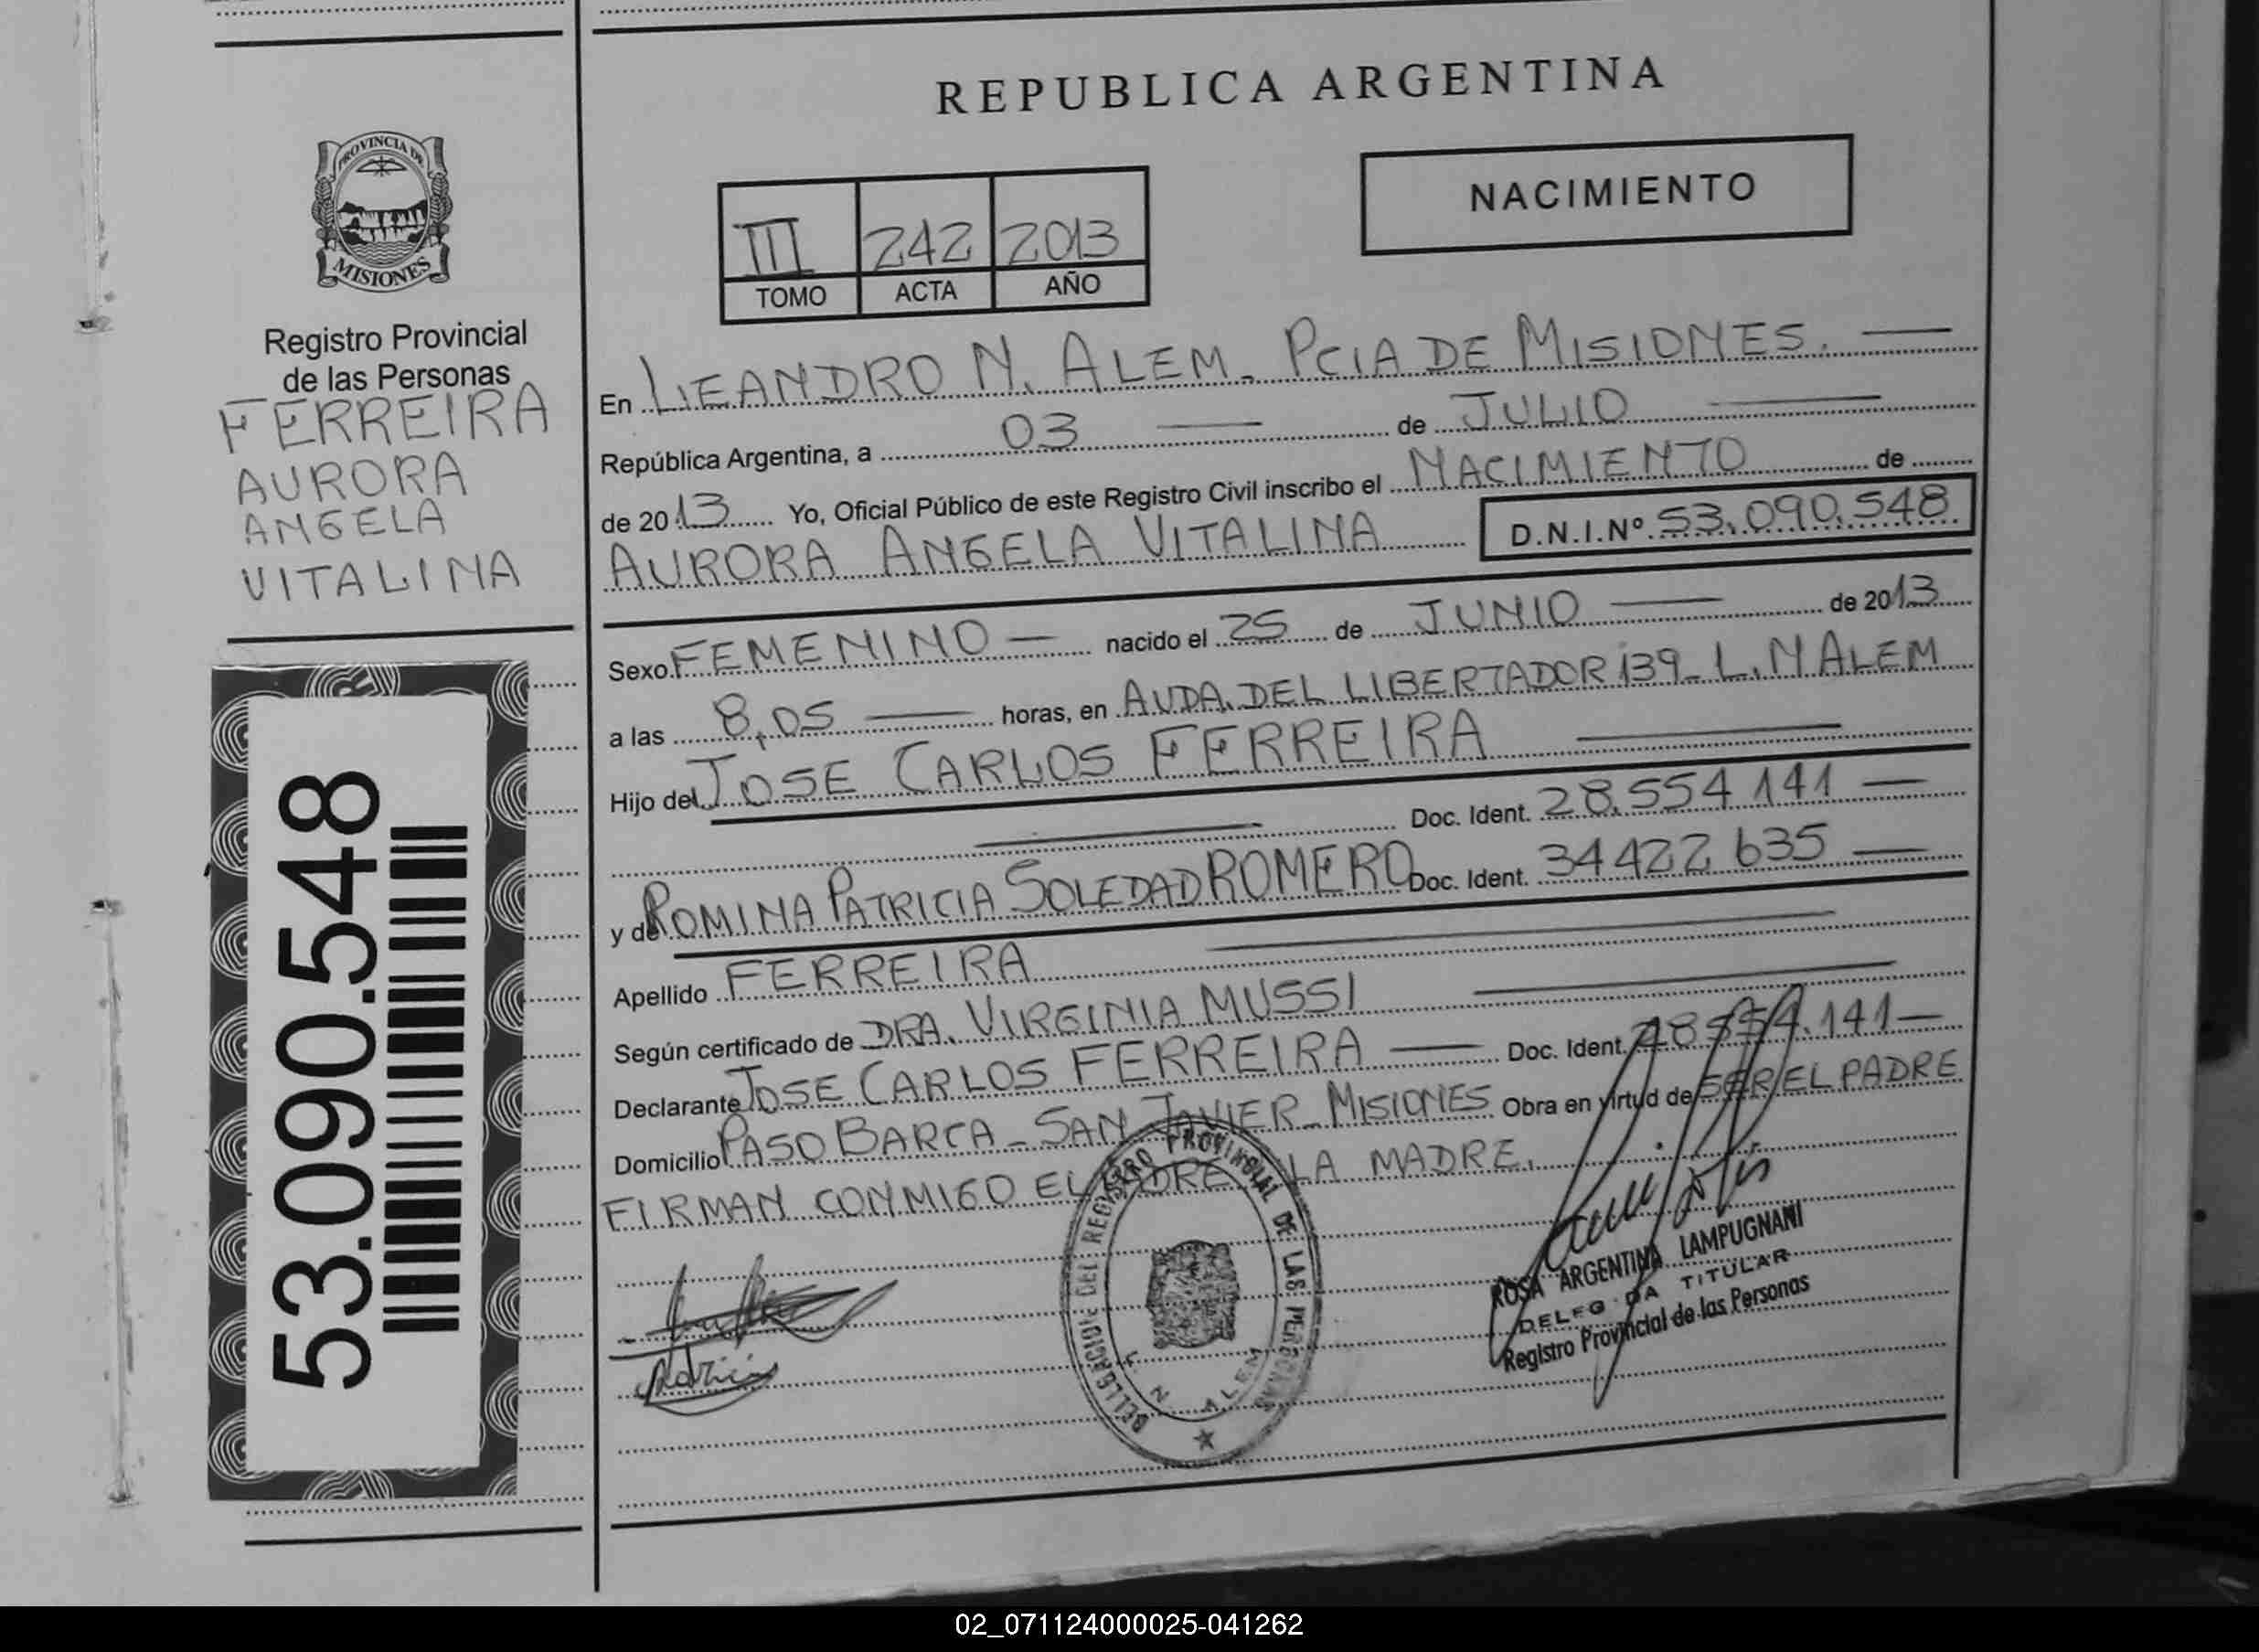 REPUBLICA ARGENTINA
PROVINCIA DE
MISIONES
Registro Provincial
de las Personas
FERREIRA
AURORA
ANGELA
VITALINA
53.090.548
NACIMIENTO
III 242 2013
TOMO ACTA AÑO
En LEANDRO N. ALEM - PCIA DE MISIONES.
República Argentina, a 03 de JULIO
de 2013 Yo, Oficial Público de este Registro Civil inscribo el NACIMIENTO de
AURORA ANGELA VITALINA D.N.I.Nº 53.090.548
Sexo FEMENINO nacido el 25 de JUNIO de 2013
a las 8,05 horas, en AVDA. DEL LIBERTADOR 139 - L. N ALEM
Hijo del JOSE CARLOS FERREIRA
Doc. Ident. 28.554 141
y de ROMINA PATRICIA SOLEDAD ROMERO Doc. Ident. 34 422 635
Apellido FERREIRA
Según certificado de DRA. VIRGINIA MUSSI
Declarante JOSE CARLOS FERREIRA Doc. Ident. 28 554.141
Domicilio PASO BARCA - SAN JAVIER - MISIONES Obra en virtud de SER EL PADRE
FIRMAN CONMIGO EL PADRE LA MADRE.
DELEGACION DEL REGISTRO PROVINCIAL DE LAS PERSONAS
L. N. ALEM
ROSA ARGENTINA LAMPUGNANI
DELEGADA TITULAR
Registro Provincial de las Personas
02_071124000025-041262